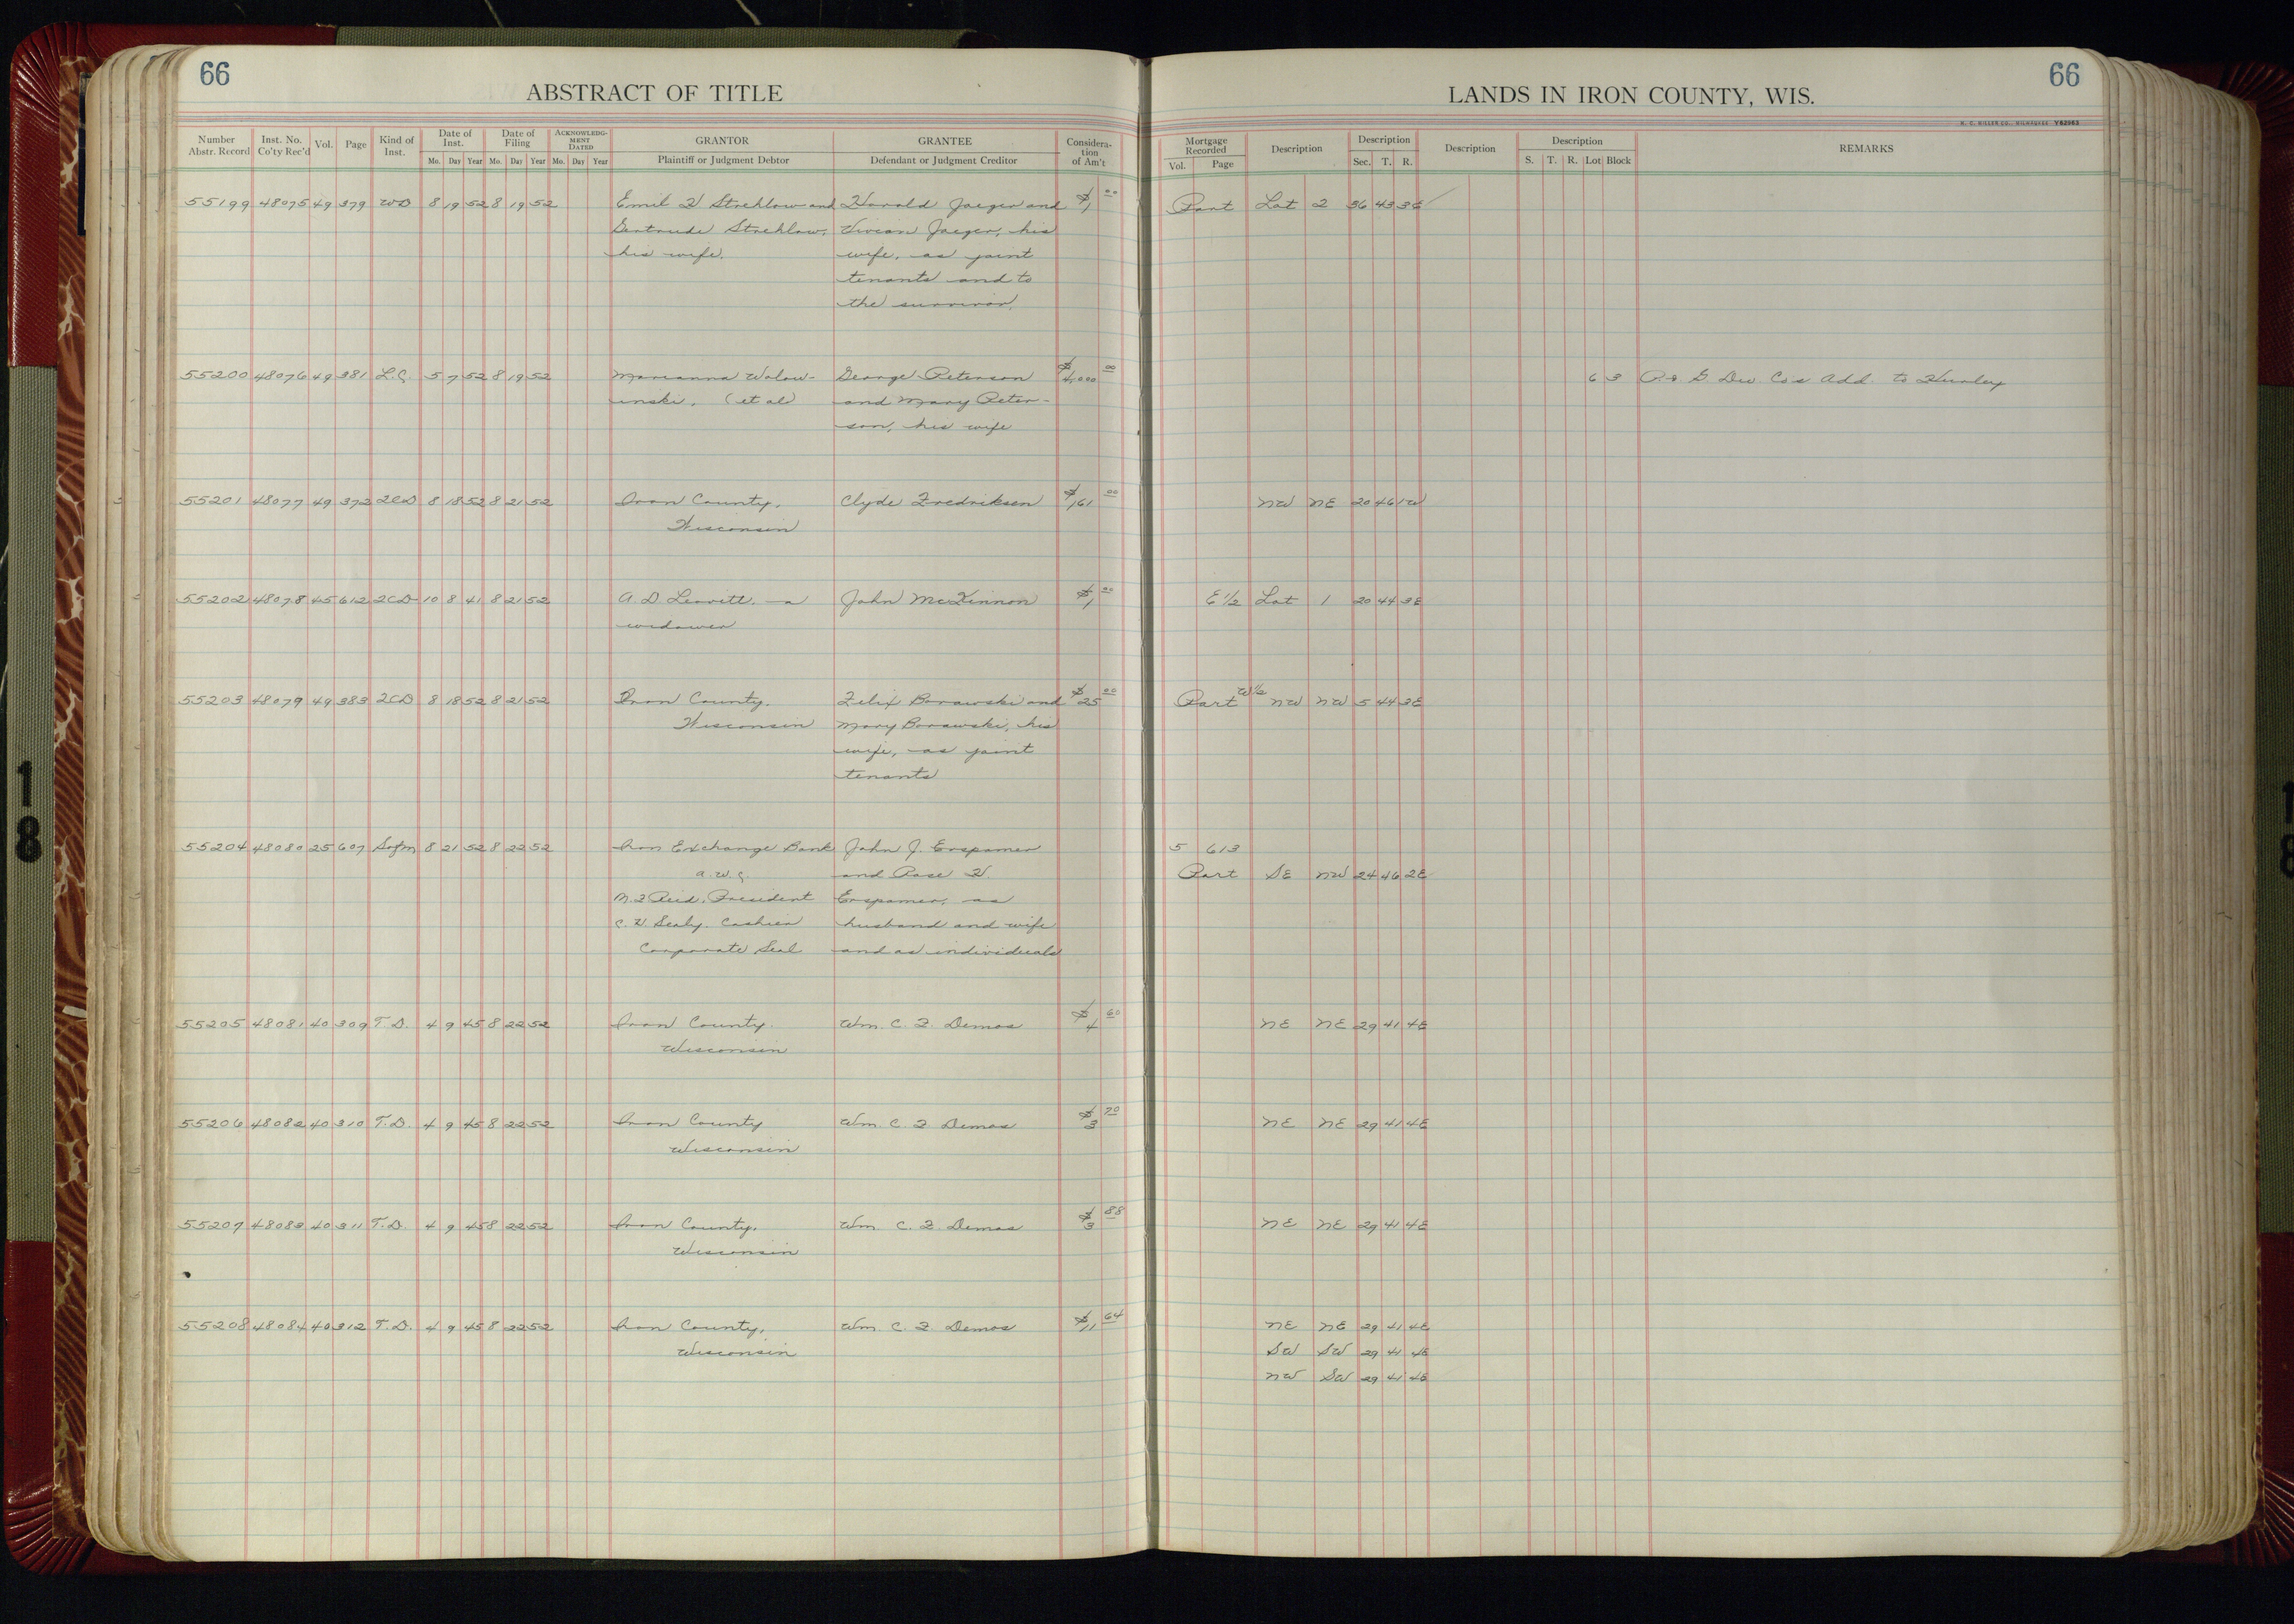 66
66
ABSTRACT OF TITLE
LANDS IN IRON COUNTY, WIS.
H. C. MILLER CO., MILWAUKEE Y82963
Number Abstr. Record Inst. No. Co'ty Rec'd Vol. Page Kind of Inst. Date of Inst. Mo. Day Year Date of Filing Mo. Day Year ACKNOWLEDGMENT DATED Mo. Day Year GRANTOR Plaintiff or Judgment Debtor GRANTEE Defendant or Judgment Creditor Consideration of Am't
Mortgage Recorded Vol. Page Description Description Sec. T. R. Description Description S. T. R. Lot Block REMARKS
55199 48075 49 379 WD 8 19 52 8 19 52 Emil H Strehlow and Harold Jaeger and $1 00 Part Lot 2 36 43 3E
Gertrude Strehlow, Vivian Jaeger, his
his wife. wife, as joint
tenants and to
the survivor.
55200 48076 49 381 L.C. 5 7 52 8 19 52 Marianna Walow- George Peterson $4,000 00 6 3 Dev Co's Add. to Hurley
inski, (et al) and Mary Peter-
son, his wife
55201 48077 49 372 2CD 8 18 52 8 21 52 Iron County, Clyde Fredriksen $161 00 NW NE 20 46 1W
Wisconsin
55202 48078 45 612 2CD 10 8 41 8 21 52 A. D. Leavitt, a John McKinnon $1 00 E 1/2 Lot 1 20 44 3E
widower
55203 48079 49 383 2CD 8 18 52 8 21 52 Iron County. Felix Borawski and $25 00 Part W 1/2 NW NW 5 44 3E
Wisconsin Mary Borawski, his
wife, as joint
tenants
55204 48080 25 607 Sofm 8 21 52 8 22 52 Iron Exchange Bank John J. Erspamer 5 613
a.w.c. and Rose H. Part SE NW 24 46 2E
M. F Reid, President Erspamer, as
C. H. Sealy, Cashier husband and wife
Corporate Seal and as individuals
55205 48081 40 309 T.D. 4 9 45 8 22 52 Iron County. Wm. C. F. Demas $4 60 NE NE 29 41 4E
Wisconsin
55206 48082 40 310 T.D. 4 9 45 8 22 52 Iron County Wm. C. F Demas $3 70 NE NE 29 41 4E
Wisconsin
55207 48083 40 311 T.D. 4 9 45 8 22 52 Iron County, Wm. C. F. Demas $3 88 NE NE 29 41 4E
Wisconsin
55208 48084 40 312 T.D. 4 9 45 8 22 52 Iron County, Wm. C. F. Demas $11 64 NE NE 29 41 4E
Wisconsin SW SW 29 41 4E
NW SW 29 41 4E
18